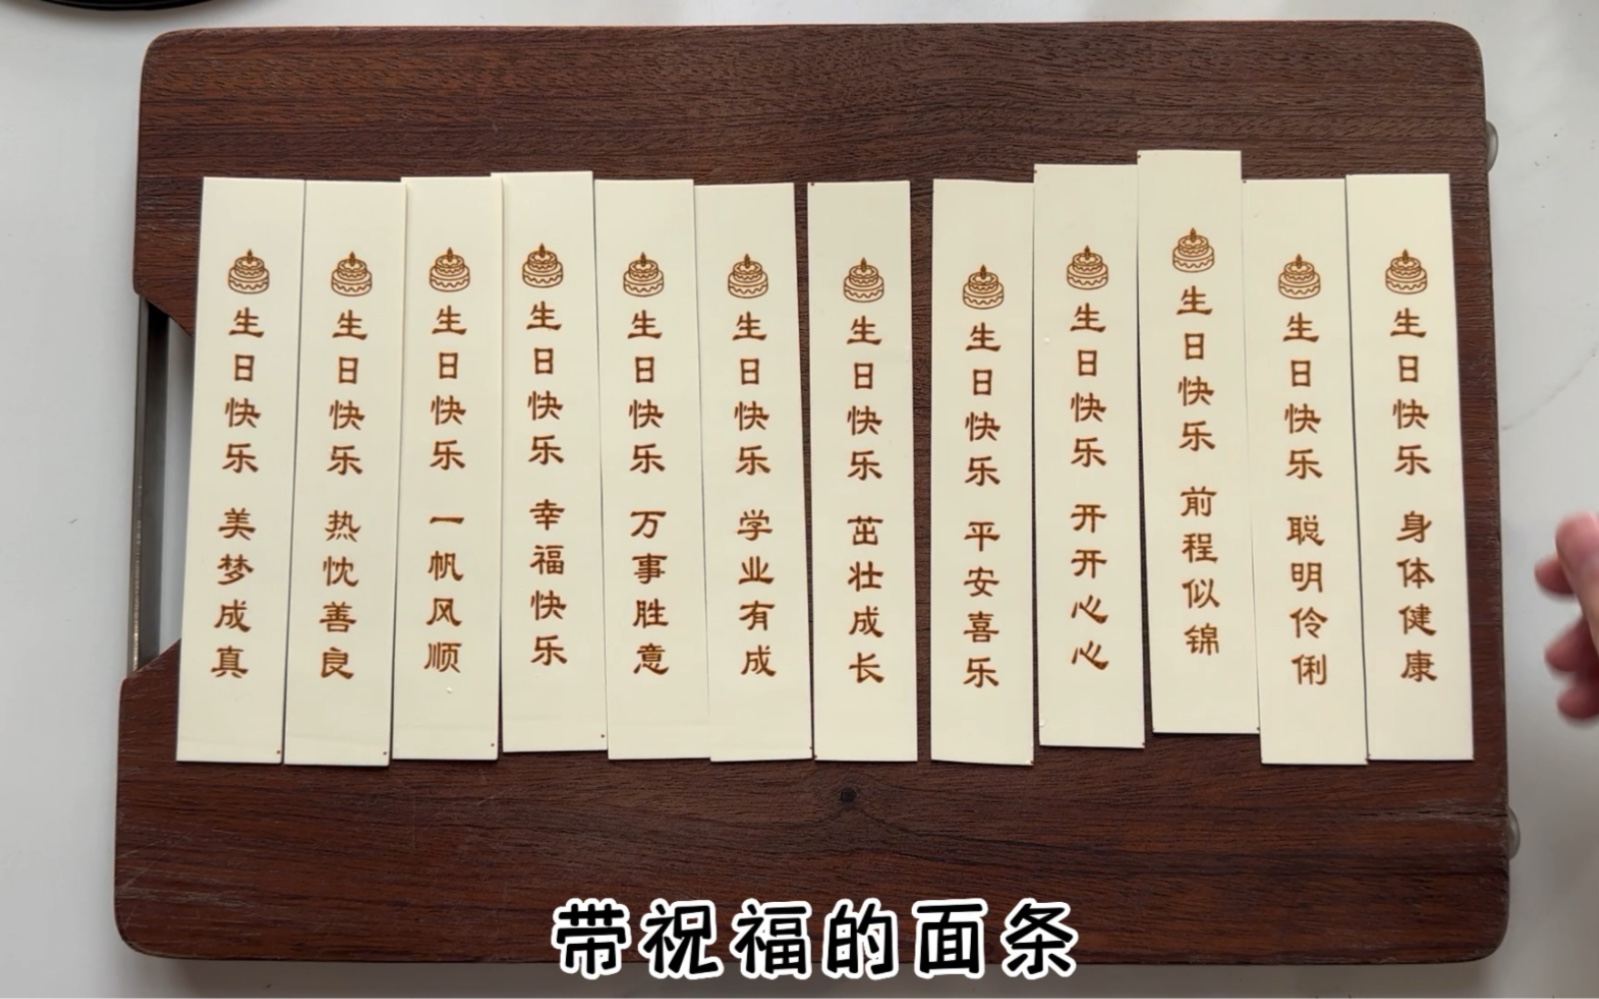 生日快乐 美梦成真
生日快乐 热忱善良
生日快乐 一帆风顺
生日快乐 幸福快乐
生日快乐 万事胜意
生日快乐 学业有成
生日快乐 茁壮成长
生日快乐 平安喜乐
生日快乐 开开心心
生日快乐 前程似锦
生日快乐 聪明伶俐
生日快乐 身体健康
带祝福的面条